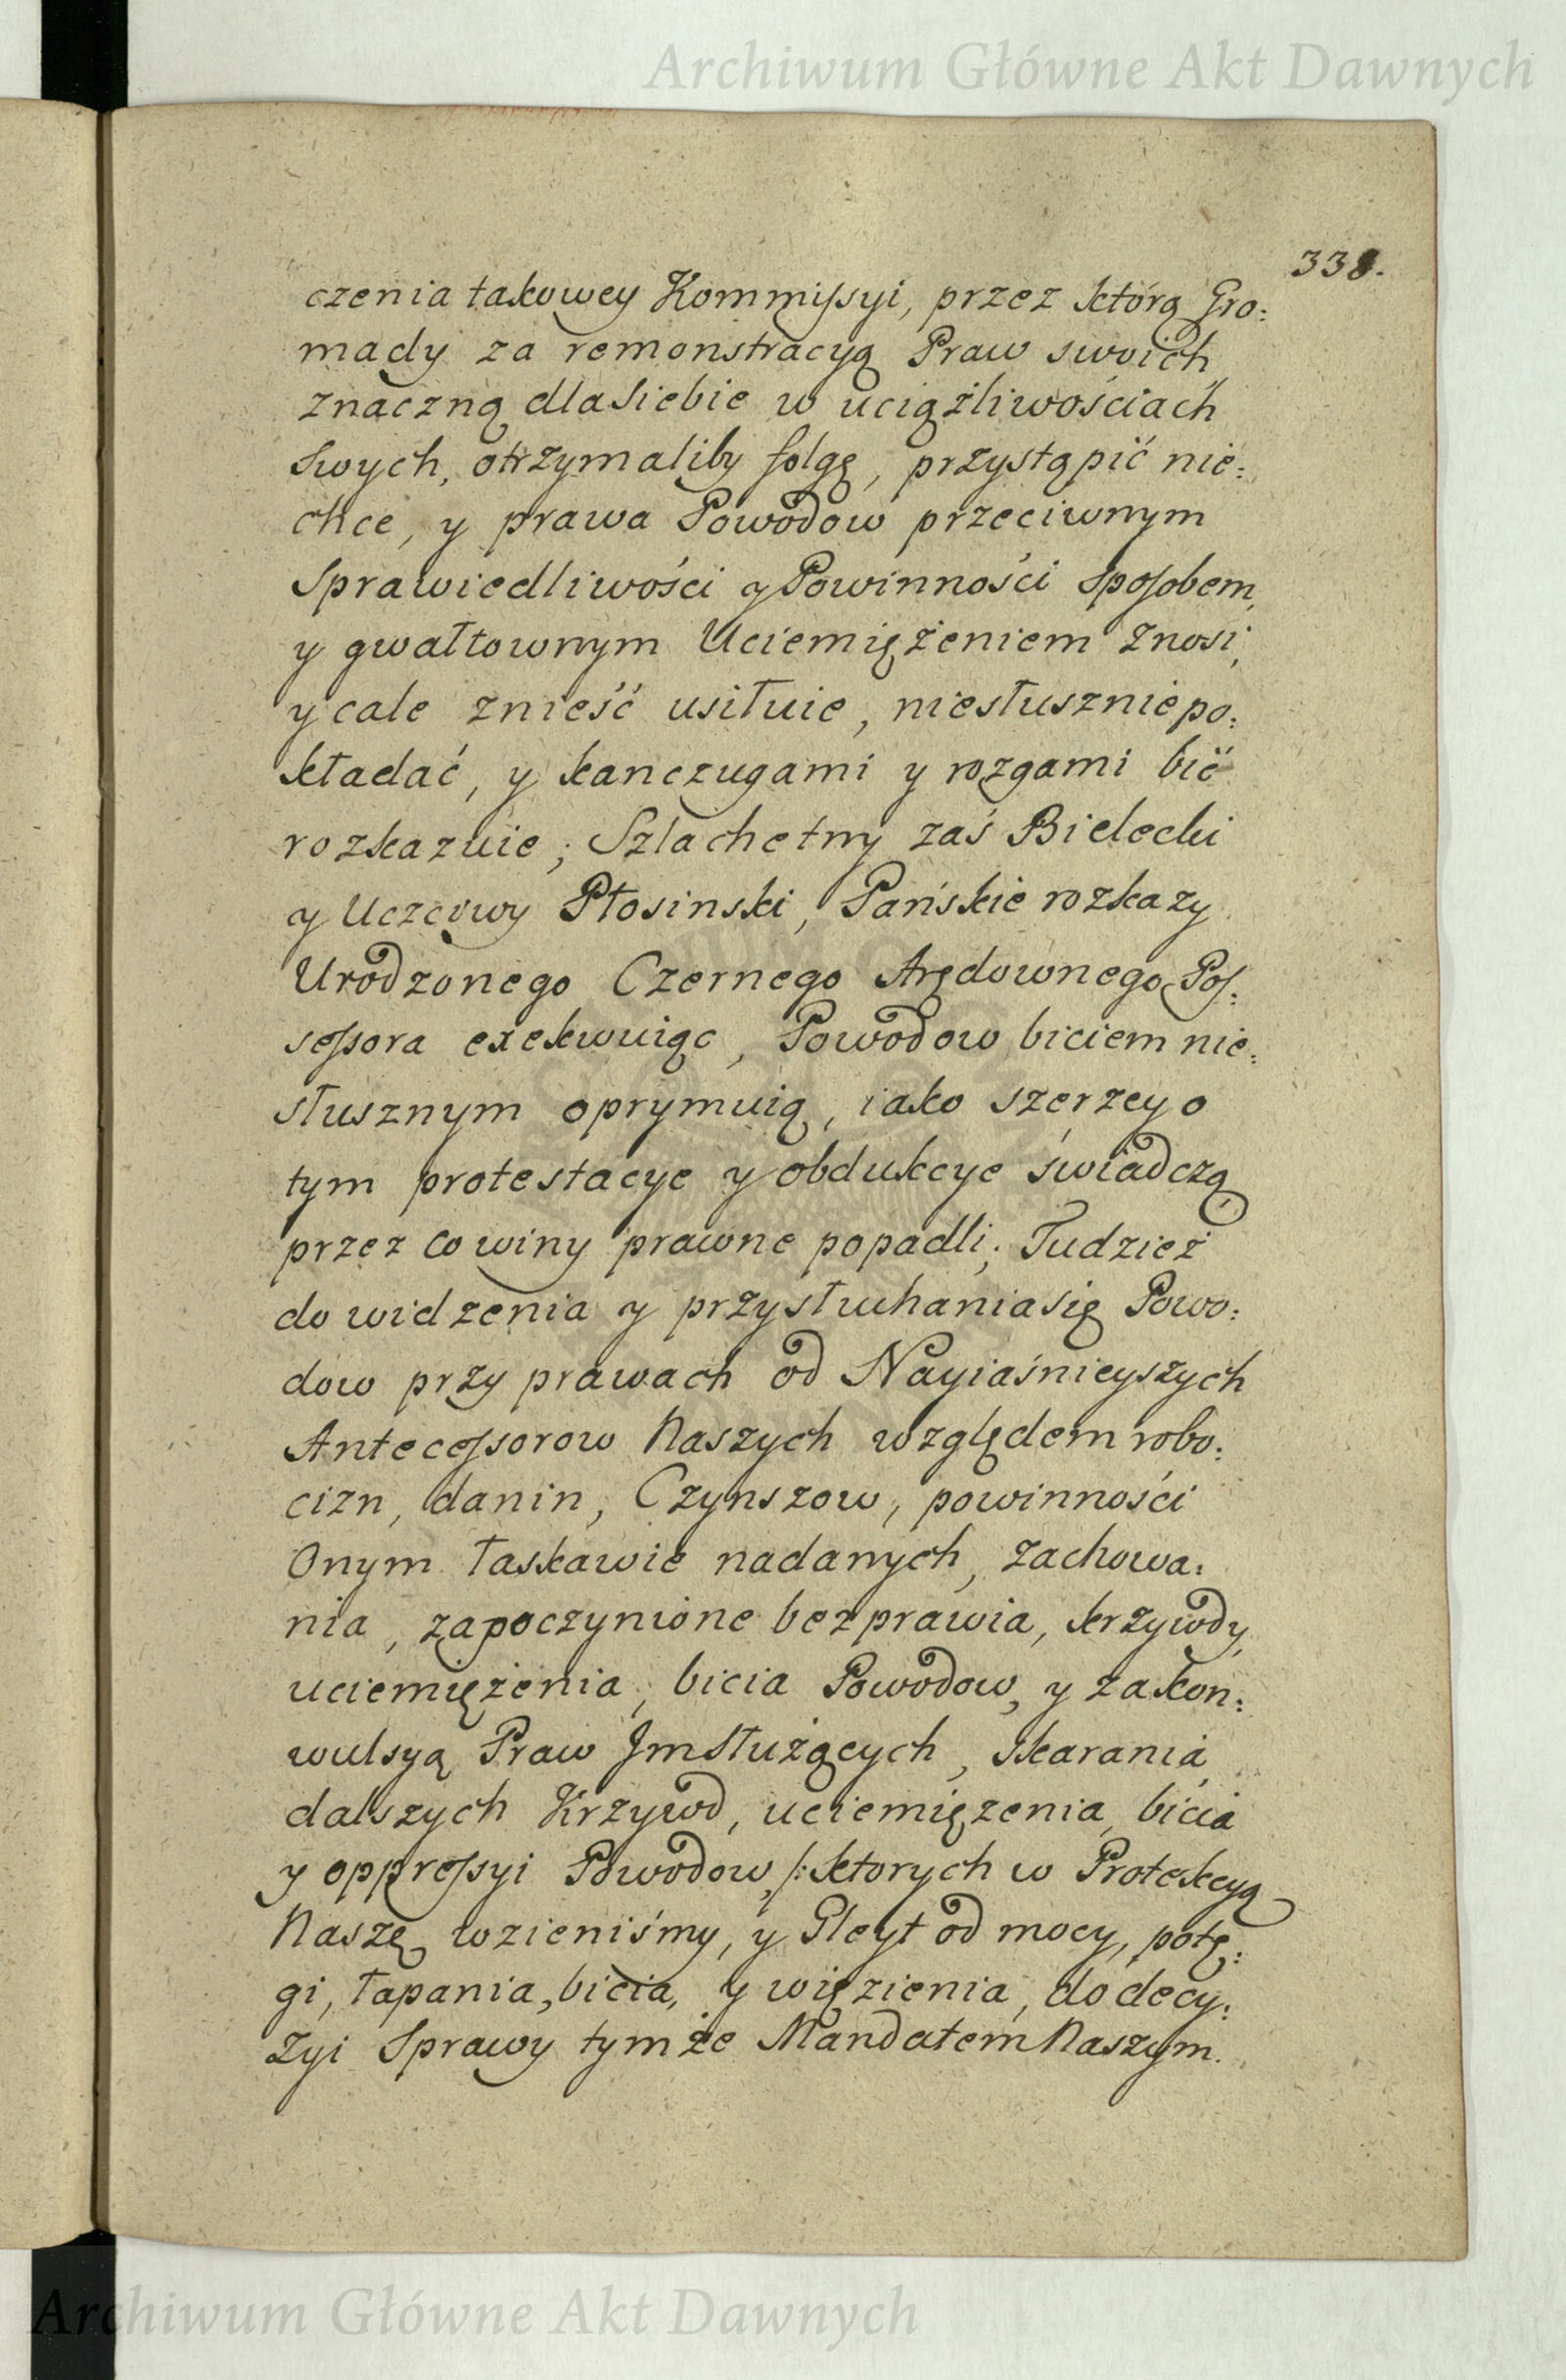 Archiwum Główne Akt Dawnych
338.
czenia takowey Kommissyi, przez którą Gro:
mady za remonstracyą Praw swoich
znaczną dla Siebie w uciążliwościach
Swych, otrzymaliby folgę, przystąpić nie:
chce, y prawa Powodow przeciwnym
Sprawiedliwości y Powinności Sposobem,
y gwałtownym Uciemiężeniem znosi,
y cale znieść usiłuie, niesłusznie po:
kładać, y kanczugami y rozgami bić
rozkazuie; Szlachetny zaś Bielecki
y Uczciwy Płosinski, Pańskie rozkazy
Urodzonego Czernego Arędownego Pos:
sessora exekwuiąc, Powodow biciem nie:
słusznym oprymuią, iako szerzey o
tym protestacye y obdukcye świadczą
przez co winy prawne popadli; Tudzież
do widzenia y przysłuchania się Powo:
dow przy prawach od Nayiaśnieyszych
Antecessorow Naszych względem robo:
cizn, danin, Czynszow, powinności
Onym łaskawie nadanych, zachowa:
nia, za poczynione bezprawia, krzywdy,
uciemiężenia, bicia Powodow, y za kon:
wulsyą Praw Jm Służących, Skarania,
dalszych Krzywd, uciemięzenia, bicia
y oppressyi Powodow, /: ktorych w Protekcyą
Naszę wzieniśmy, y Gleyt od mocy, potę:
gi, łapania, bicia, y więzienia, do decy:
zyi Sprawy tymże Mandatem Naszym.
Archiwum Główne Akt Dawnych